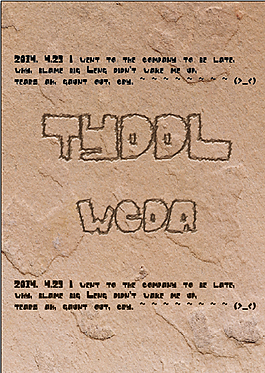 2014. 4.23 I went to the company to be late,
why blame big Leng didn't wake me up,
tears ah, gaunt out, cry. ~ ~ ~ ~ ~ ~ ~ ~ (>_<)
TYDDL
WCDA
2014. 4.23 I went to the company to be late,
why blame big Leng didn't wake me up,
tears ah, gaunt out, cry. ~ ~ ~ ~ ~ ~ ~ ~ (>_<)